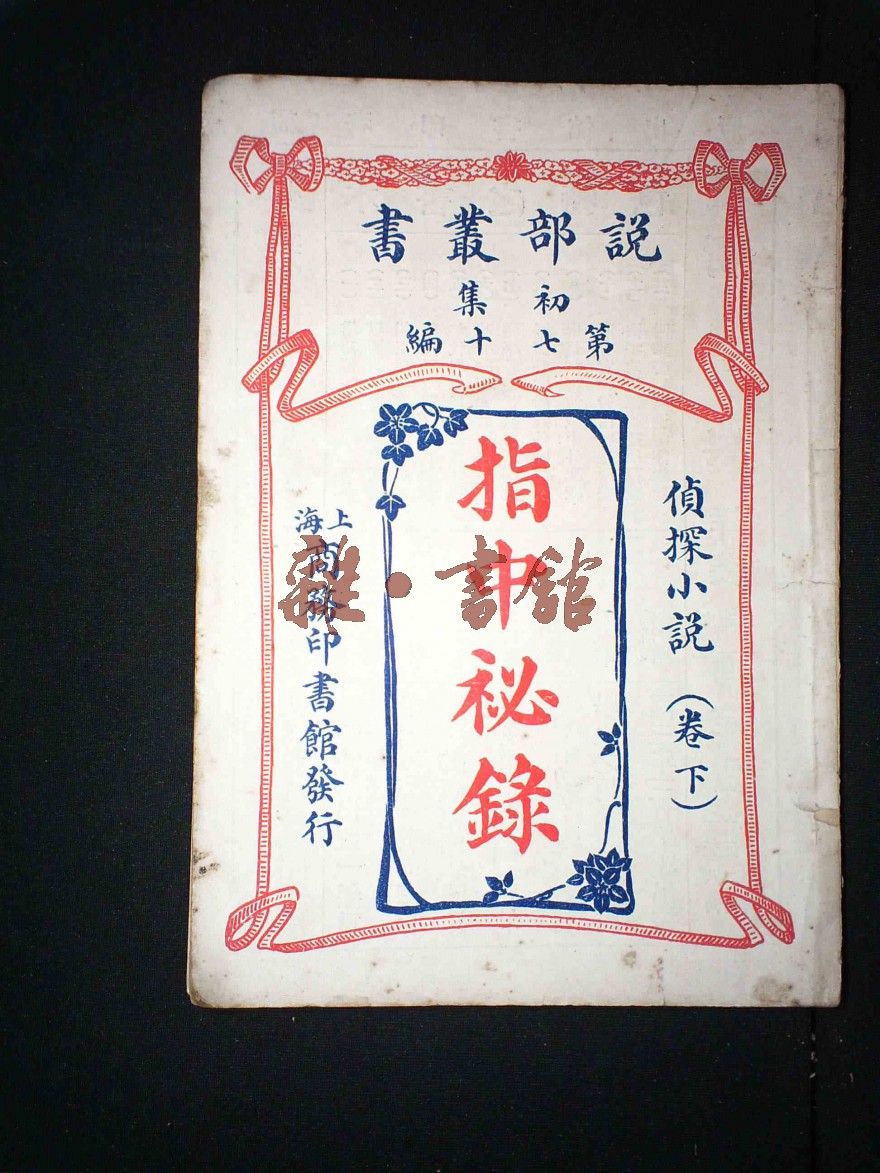 説部叢書
初集
第七十編
偵探小説（卷下）
指中秘錄
上海商務印書館發行
雜·書館